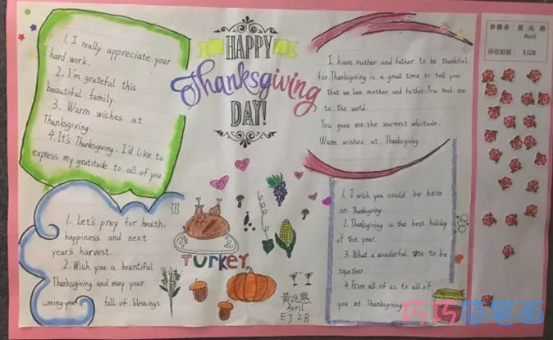 1. I really appreciate your
hard work.
2. I'm grateful this
beautiful family.
3. Warm wishes at
Thanksgiving
4. It's Thanksgiving. I'd like to
express my gratitude to all of you
HAPPY
Thanksgiving
DAY!
I have mother and father to be thankful
for. Thanksgiving is a great time to tell you
that we love mother and father. You took me
to the world.
You gave me the warmest
Warm wishes at Thanksgiving
1. Let's pray for health,
happiness and next
year's harvest.
2. Wish you a bountiful
Thanksgiving and may your
full of blessings.
TURKEY
1. I wish you could be here
on Thanksgiving.
2. Thanksgiving is the best holiday
of the year.
3. What a wonderful to be
together.
4. From all of us to all of
you at Thanksgiving
Avril
EJ2B
Avril
EJ2B
巧巧简笔画